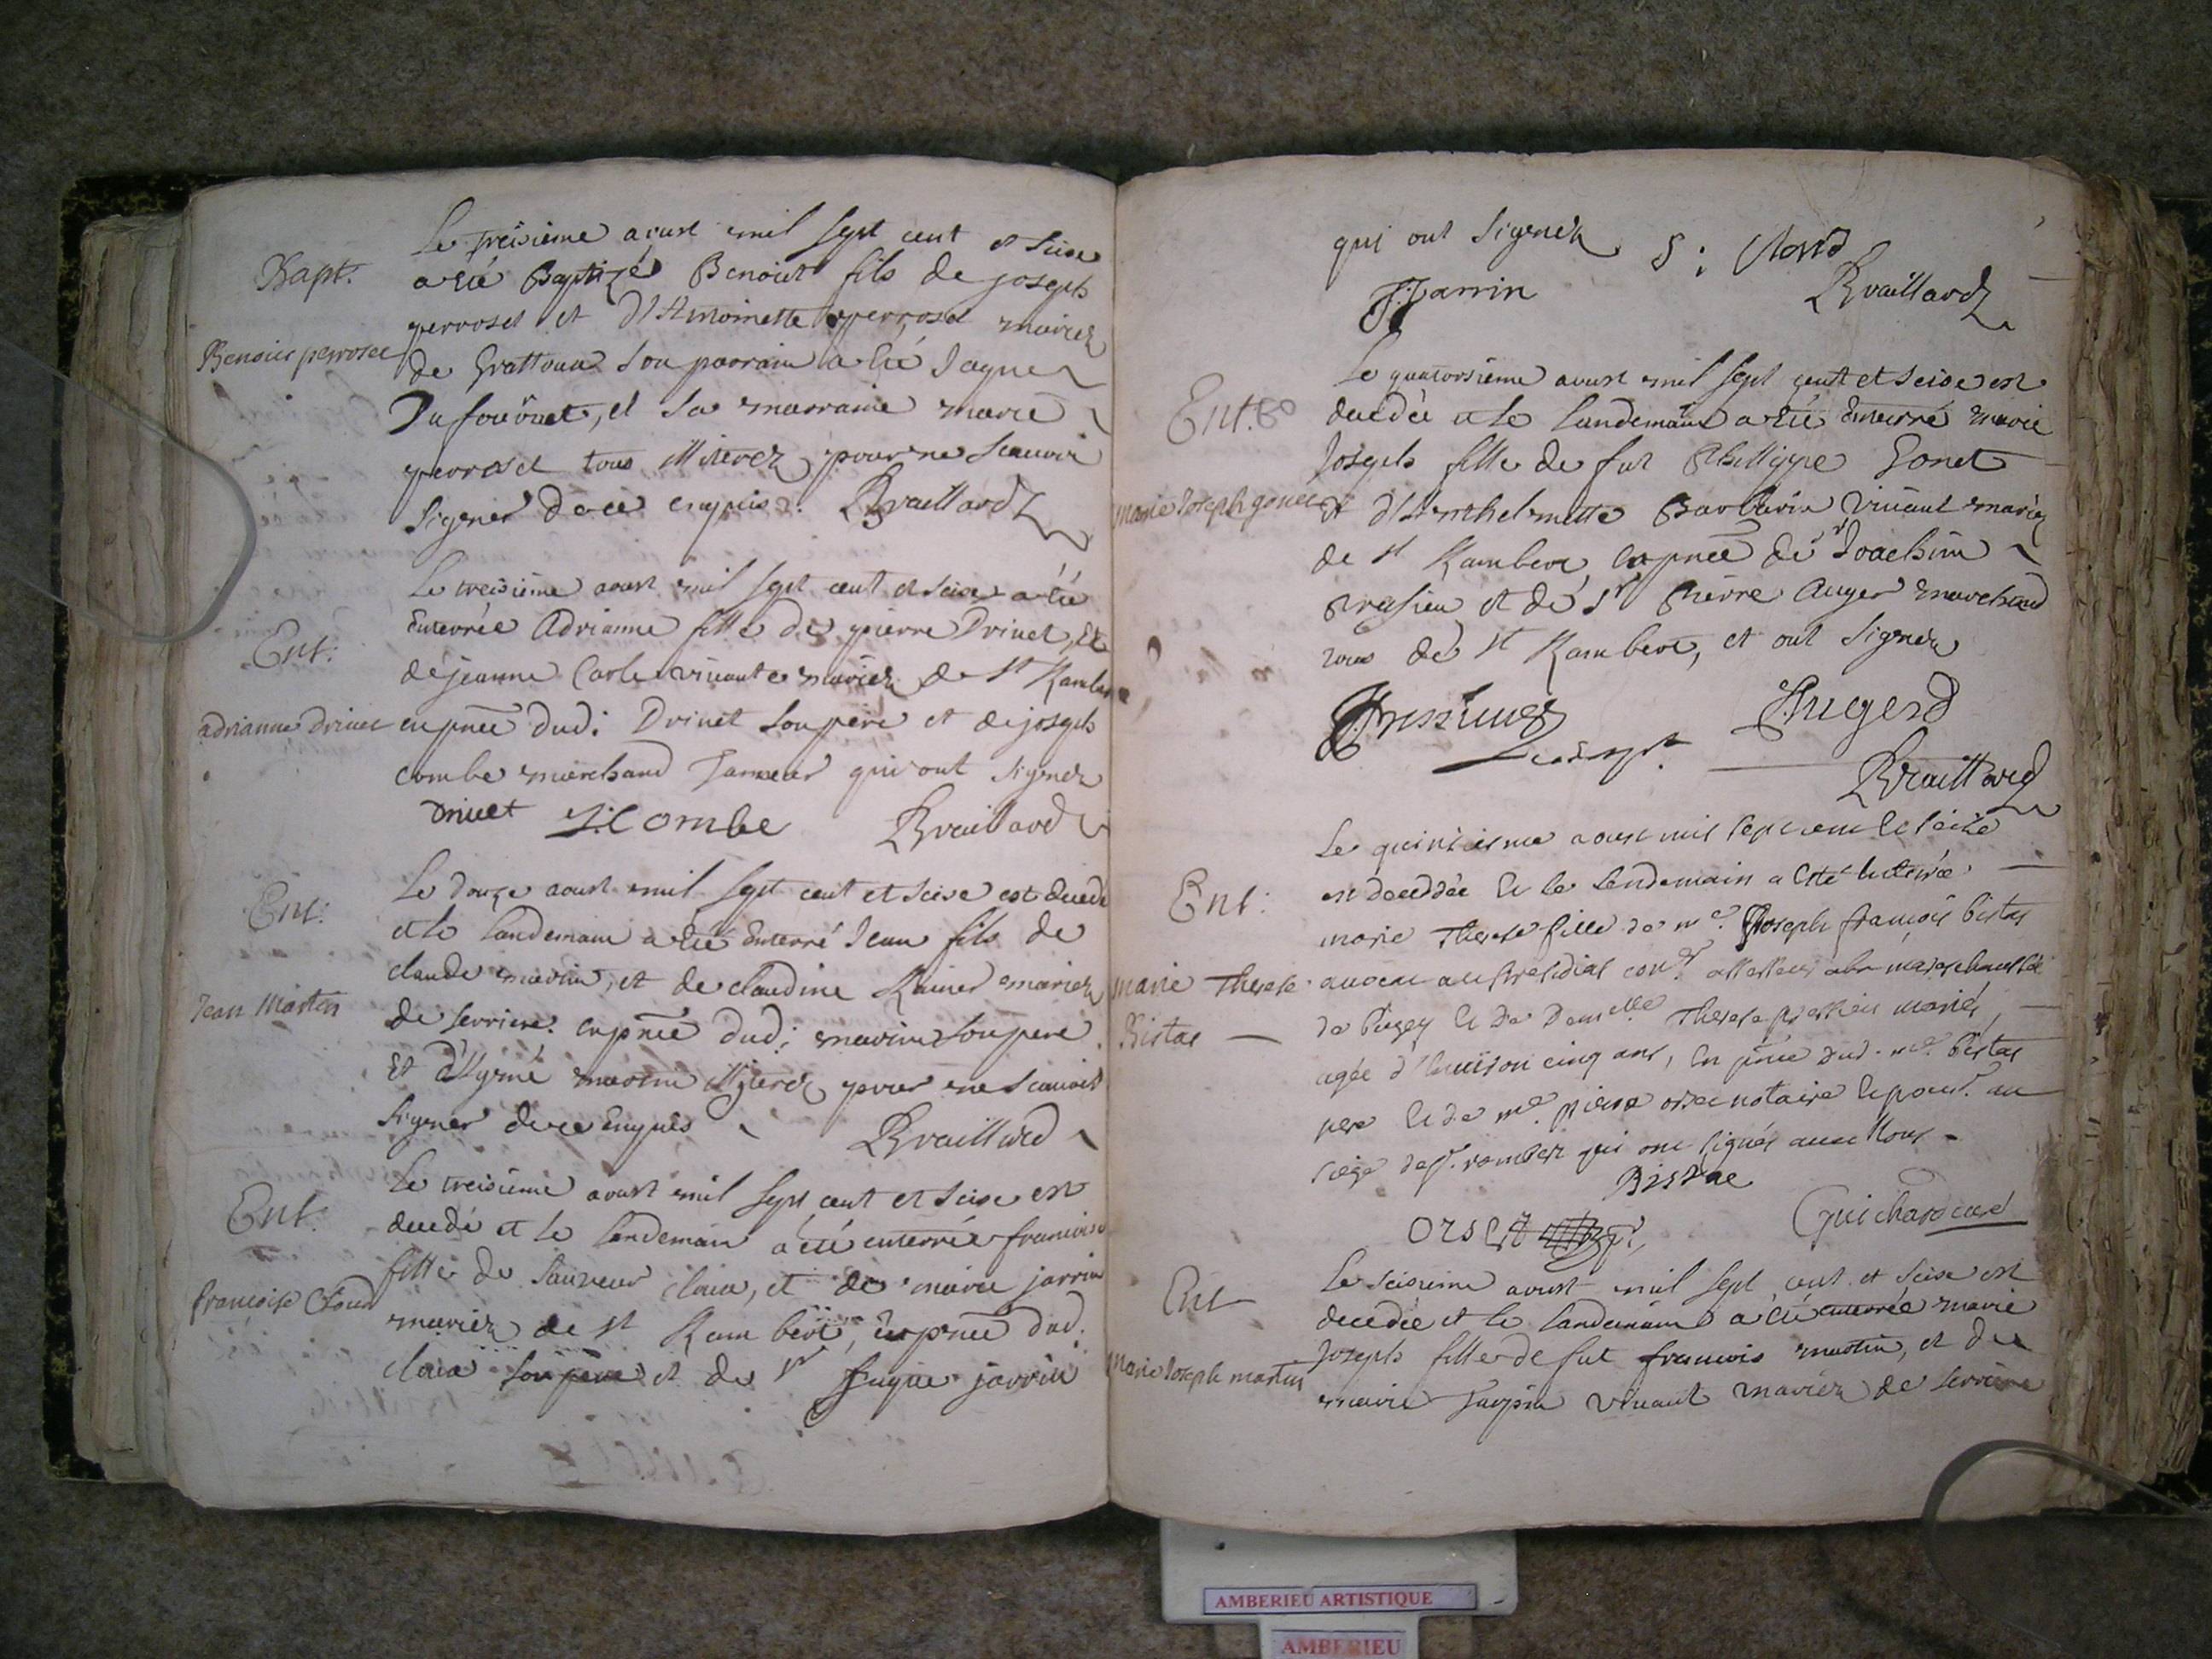 Bapt.
Benoict perroset
Le treisieme aoust mil sept cent et seise
a eté Baptizé Benoict fils de joseph
perroset et d'Antoinette perroset mariez
de Grattoux son parrain a eté Jaque
Dufour et sa marraine marie
perroset tous illiterez pour ne scauoir
signer de ce enquis. Brvaillard
Ent:
adrianne driuet
Le treisieme aoust mil sept cent et seise a eté
Enterrée Adrianne fille de pierre Driuet, Et
de jeanne Carle viuants mariez de st Rambert
en pnce dud: Driuet son pere et de joseph
combe marchand Tanneur qui ont signez
Driuet J: Combe Brvaillard
Ent:
Jean Martin
Le douze aoust mil sept cent et seise est decedé
et le landemain a eté Enterré Jean fils de
claude martin, et de claudine Rainer mariez
de serriere. en pnce dud: martin son pere
Et d'Aymé martin illiterez pour ne scauoir
signer de ce Enquis Brvaillard
Ent:
francoise Claua
Le treisieme aoust mil sept cent et seise est
decedé et le landemain a eté enterrée francoise
fille de sauueur claua, et de marie jarrin
mariez de st Rambert, en pnce dud.
claua son pere et de sr jarrin
qui ont signez
Jarrin Brvaillard
Ent.
marie Joseph gonet
Le quatorsieme aoust mil sept cent et seise est
decedée et le landemain a eté Enterré marie
Joseph fille de fut Phillippe Gonet
et d'Anthelmette Barbarin viuant mariez
de st Rambert, en pnce de sr Joachim
Pressieu et de sr Pierre Auger marchand
tous de st Rambert, et ont signez
Pressieux Augerd
Brvaillard
Ent:
marie Therese
Bistac
Le quinsiesme aoust mil sept cent et seise
est deceddée et le lendemain a etté enterrée
marie Therese fille de me. Joseph françois bistac
auocat au presidial conr. assesseur a la mareschaussée
de bugey et de damelle Therese pressieu mariés,
agée d'enuiron cinq ans, en pnce dud. me. bistac
pere et de me. pierre orset notaire et procr. au
siege de st. rambert qui ont signés auec Nous
Bistac
Orset Guichard curé
Ent
Marie Joseph martin
Le seisieme aoust mil sept cent et seise est
decedée et le landemain a eté enterrée marie
Joseph fille de fut francois martin, et de
marie Turpin viuant mariez de serriere
AMBERIEU ARTISTIQUE
AMBERIEU